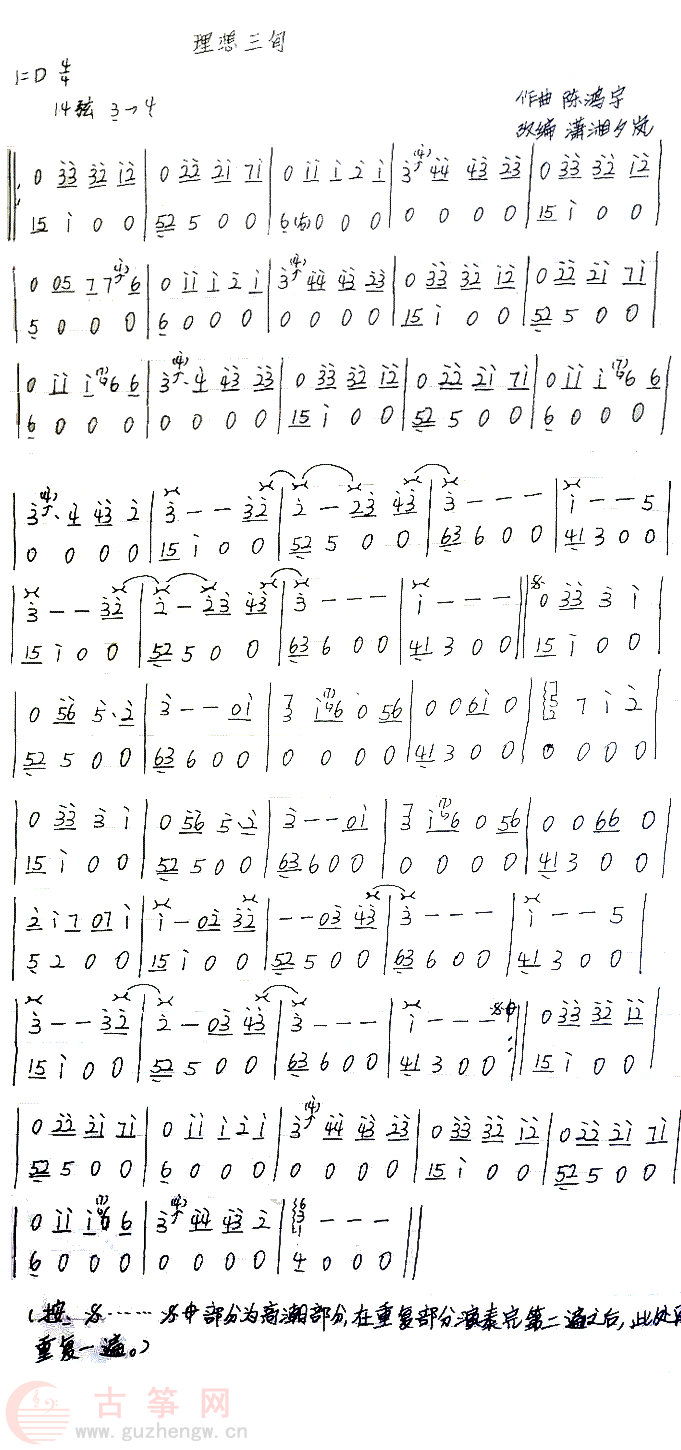 理想三旬
1=D 4/4
14弦 3→4
作曲 陈鸿宇
改编 潇湘夕岚
0 33 32 12 | 0 22 21 71 | 0 11 1 2 1 | 3 (4) 44 43 23 | 0 33 32 12 |
15 1 0 0 | 52 5 0 0 | 6(5) 0 0 0 | 0 0 0 0 | 15 1 0 0 |
0 05 7 7 (4) 6 | 0 11 1 2 1 | 3 (4) 44 43 23 | 0 33 32 12 | 0 22 21 71 |
5 0 0 0 | 6 0 0 0 | 0 0 0 0 | 15 1 0 0 | 52 5 0 0 |
0 11 1 (7) 6 6 | 3 (4) 4 43 23 | 0 33 32 12 | 0 22 21 71 | 0 11 1 (7) 6 6 |
6 0 0 0 | 0 0 0 0 | 15 1 0 0 | 52 5 0 0 | 6 0 0 0 |
3 (4) 4 43 2 | 3 - - 32 | 2 - 23 43 | 3 - - - | 1 - - 5
0 0 0 0 | 15 1 0 0 | 52 5 0 0 | 63 6 0 0 | 41 3 0 0 |
3 - - 32 | 2 - 23 43 | 3 - - - | 1 - - - || 0 33 3 1 |
15 1 0 0 | 52 5 0 0 | 63 6 0 0 | 41 3 0 0 || 15 1 0 0 |
0 56 5. 2 | 3 - - 01 | 3 1 (7) 6 0 56 | 0 0 61 0 | 7 1 2 |
52 5 0 0 | 63 6 0 0 | 0 0 0 0 | 41 3 0 0 | 0 0 0 0 |
0 33 3 1 | 0 56 5. 2 | 3 - - 01 | 3 1 (7) 6 0 56 | 0 0 66 0 |
15 1 0 0 | 52 5 0 0 | 63 6 0 0 | 0 0 0 0 | 41 3 0 0 |
2 1 7 07 1 | 1 - 02 32 | - - 03 43 | 3 - - - | 1 - - 5
5 2 0 0 | 15 1 0 0 | 52 5 0 0 | 63 6 0 0 | 41 3 0 0 |
3 - - 32 | 2 - 03 43 | 3 - - - | 1 - - - :|| 0 33 32 12 |
15 1 0 0 | 52 5 0 0 | 63 6 0 0 | 41 3 0 0 :|| 15 1 0 0 |
0 22 21 71 | 0 11 1 2 1 | 3 (4) 44 43 23 | 0 33 32 12 | 0 22 21 71 |
52 5 0 0 | 6 0 0 0 | 0 0 0 0 | 15 1 0 0 | 52 5 0 0 |
0 11 1 (7) 6 6 | 3 (4) 44 43 2 | - - - ||
6 0 0 0 | 0 0 0 0 | 4 0 0 0 ||
(按、𝄋……𝄋中部分为高潮部分,在重复部分演奏完第二遍之后,此处
重复一遍。)
古筝网
www.guzhengw.cn